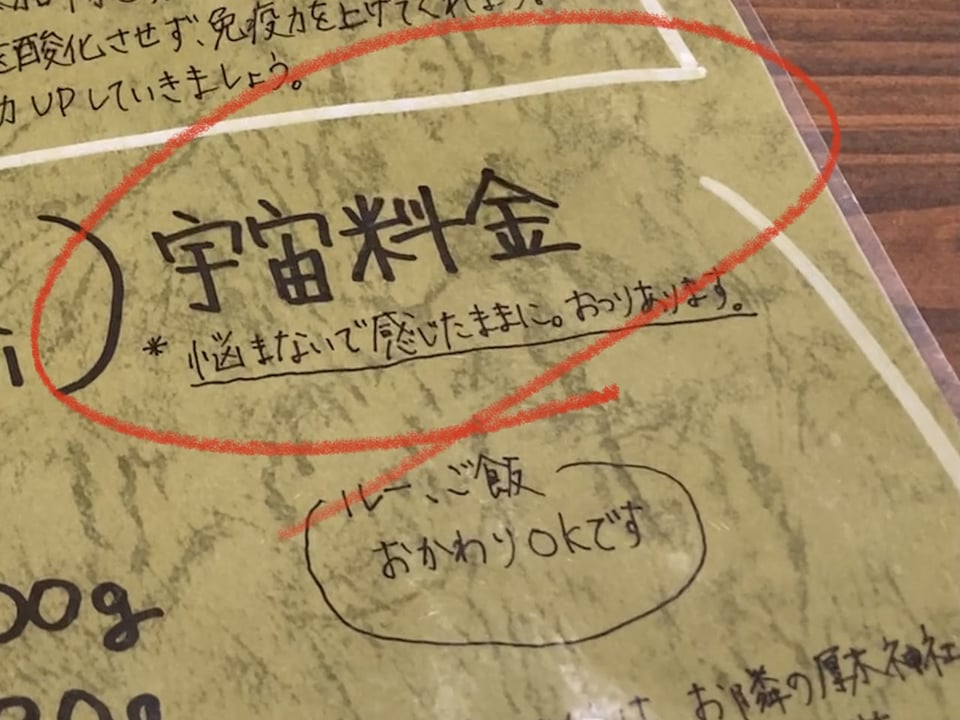 酸化させず、免疫力を上げてくれます。
力UPしていきましょう。
宇宙料金
* 悩まないで感じたままに。おつりあります。
ルー、ご飯
おかわりOKです
00g
お隣の厚木神社